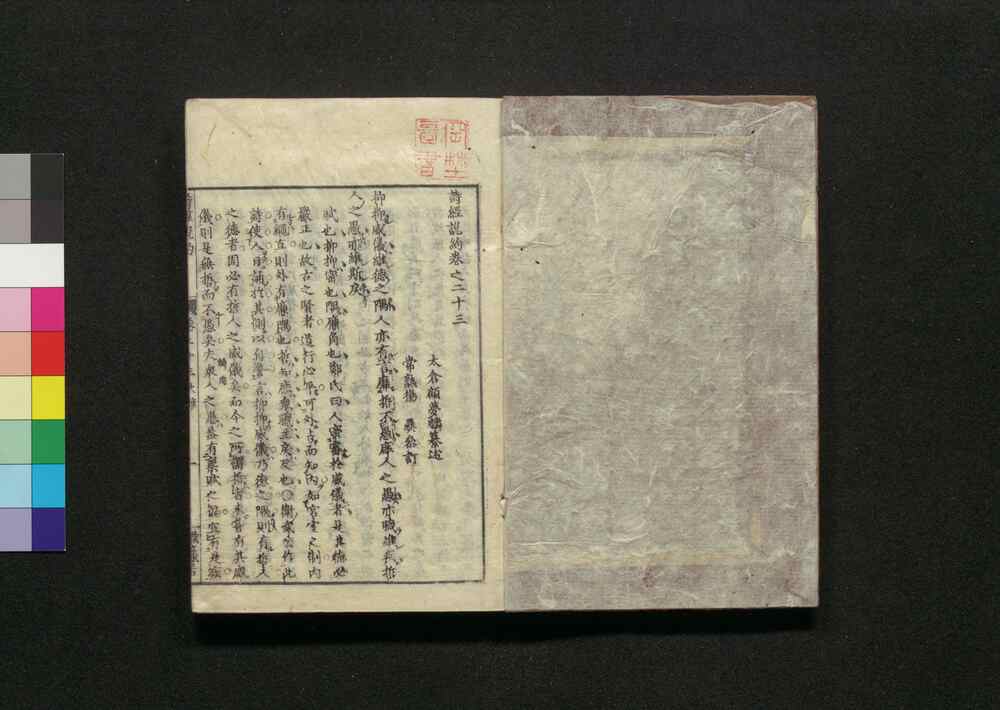 詩經說約卷之二十三
太倉顧夢麟纂述
常熟楊彝參訂
抑抑威儀維德之隅人亦有言靡哲不愚庶人之愚亦職維疾哲
人之愚亦維斯戾
賦也抑抑密也隅廉角也鄭氏曰人密審於威儀者是其德必
嚴正也故古之賢者道行心平可外占而知內如宮室之制內
有繩直則外有廉隅也哲知庶眾職主戾反也○衛武公作此
詩使人日誦於其側以自警言抑抑威儀乃德之隅則有哲人
之德者固必有哲人之威儀矣而今之所謂哲者未嘗有其威
儀則是無哲而不愚矣夫眾人之愚蓋有稟賦之偏宜有是疾